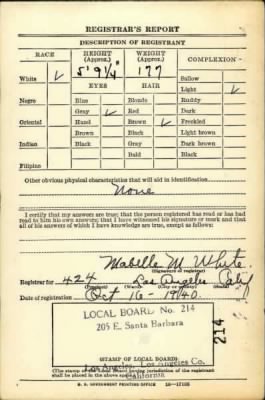 REGISTRAR'S REPORT
DESCRIPTION OF REGISTRANT
RACE HEIGHT (Approx.) WEIGHT (Approx.) COMPLEXION
5' 9¼" 177
White ✓ Sallow
EYES HAIR Light ✓
Negro Blue Blonde Ruddy
Gray ✓ Red Dark
Oriental Hazel Brown ✓ Freckled
Brown Black Light brown
Indian Black Gray Dark brown
Bald Black
Filipino
Other obvious physical characteristics that will aid in identification
None
I certify that my answers are true; that the person registered has read or has had
read to him his own answers; that I have witnessed his signature or mark and that
all of his answers of which I have knowledge are true, except as follows:
Mabelle M. White
(Signature of registrar)
Registrar for 424 Los Angeles Calif
(Precinct) (Ward) (City or county) (State)
Date of registration Oct 16-1940.
LOCAL BOARD No. 214
205 E. Santa Barbara
Los Angeles, Los Angeles Co.
California
214
(STAMP OF LOCAL BOARD)
(The stamp of the Local Board having jurisdiction of the registrant
shall be placed in the above space.)
U. S. GOVERNMENT PRINTING OFFICE 16—17105